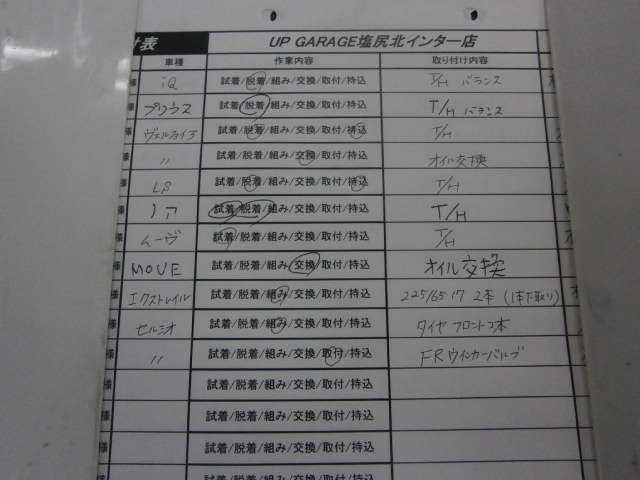 付表 UP GARAGE塩尻北インター店
車種 作業内容 取り付け内容
様 iQ 試着/脱着/組み/交換/取付/持込 T/H バランス
様 プリウス 試着/脱着/組み/交換/取付/持込 T/H バランス
様 ヴェルファイア 試着/脱着/組み/交換/取付/持込 T/H
様 〃 試着/脱着/組み/交換/取付/持込 オイル交換
様 LS 試着/脱着/組み/交換/取付/持込 T/H
様 ノア 試着/脱着/組み/交換/取付/持込 T/H
様 ムーヴ 試着/脱着/組み/交換/取付/持込 T/H
様 MOVE 試着/脱着/組み/交換/取付/持込 オイル交換
様 エクストレイル 試着/脱着/組み/交換/取付/持込 225/65 17 2本 (1本下取り)
様 セルシオ 試着/脱着/組み/交換/取付/持込 タイヤ フロント2本
様 〃 試着/脱着/組み/交換/取付/持込 FRウインカーバルブ
様 試着/脱着/組み/交換/取付/持込
様 試着/脱着/組み/交換/取付/持込
様 試着/脱着/組み/交換/取付/持込
試着/脱着/組み/交換/取付/持込